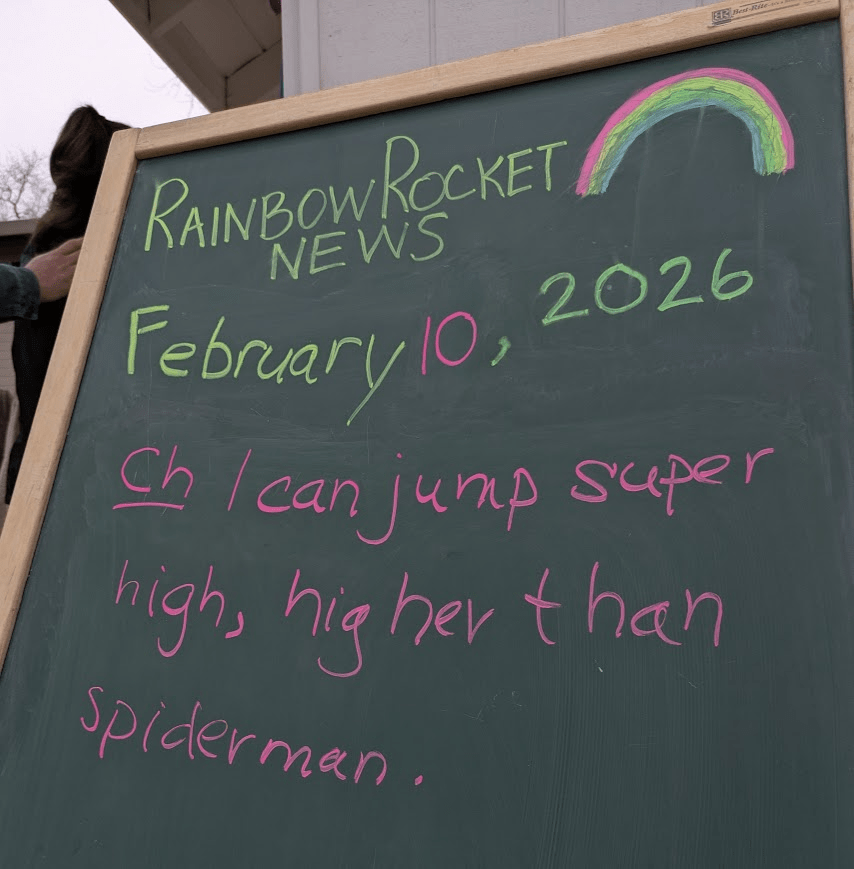 Best-Rite
RAINBOW ROCKET
NEWS
February 10, 2026
Ch I can jump super
high, higher than
spiderman.